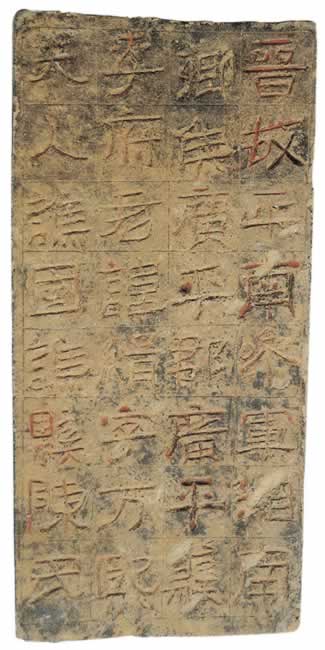 晉故平南參軍湘南
鄉侯廣平郡廣平縣
李府君諱緝字方熙
夫人譙國譙縣陳氏